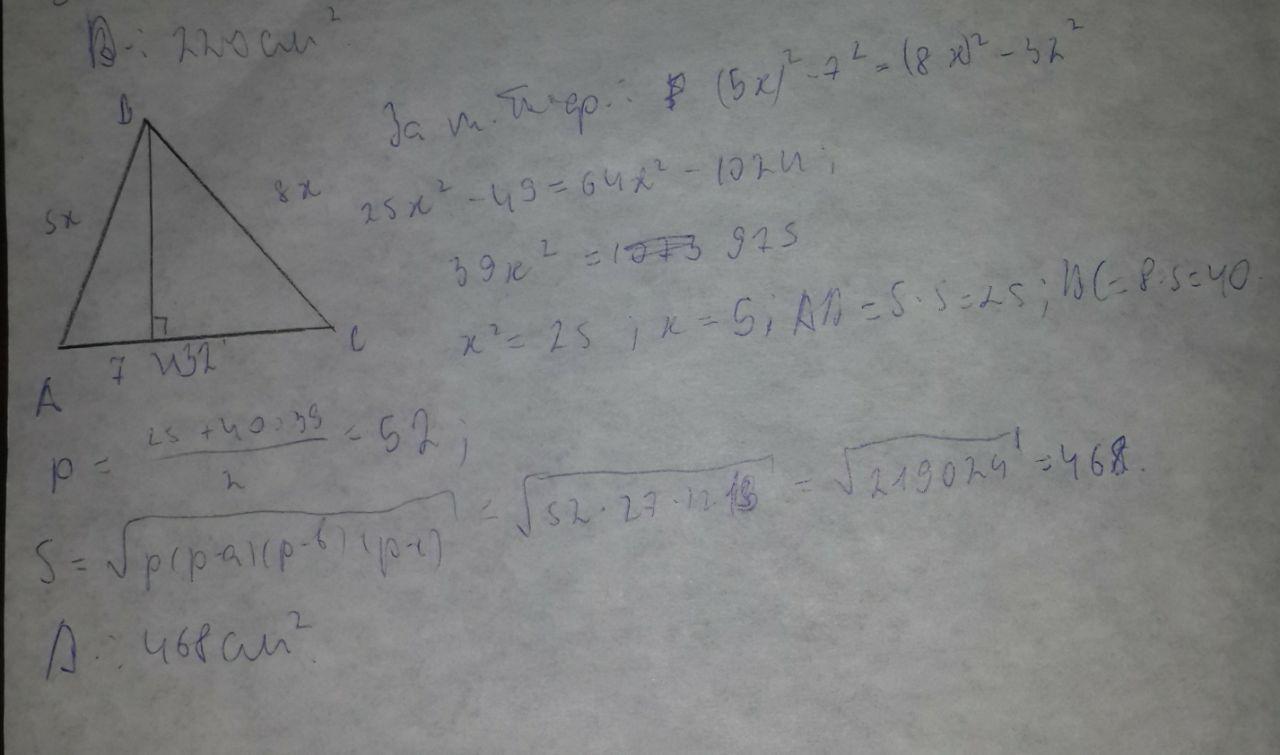 В-: 220 см²
За т. Піф.: (5x)² - 7² = (8x)² - 32²
B
5x
8x
25x² - 49 = 64x² - 1024;
39x² = 975
x² = 25; x = 5; AB = 5·5=25; BC = 8·5=40.
A
7
32
C
p = (25+40+39)/2 = 52;
S = √(p(p-a)(p-b)(p-c)) = √(52·27·12·13) = √219024 = 468.
В-: 468 см².